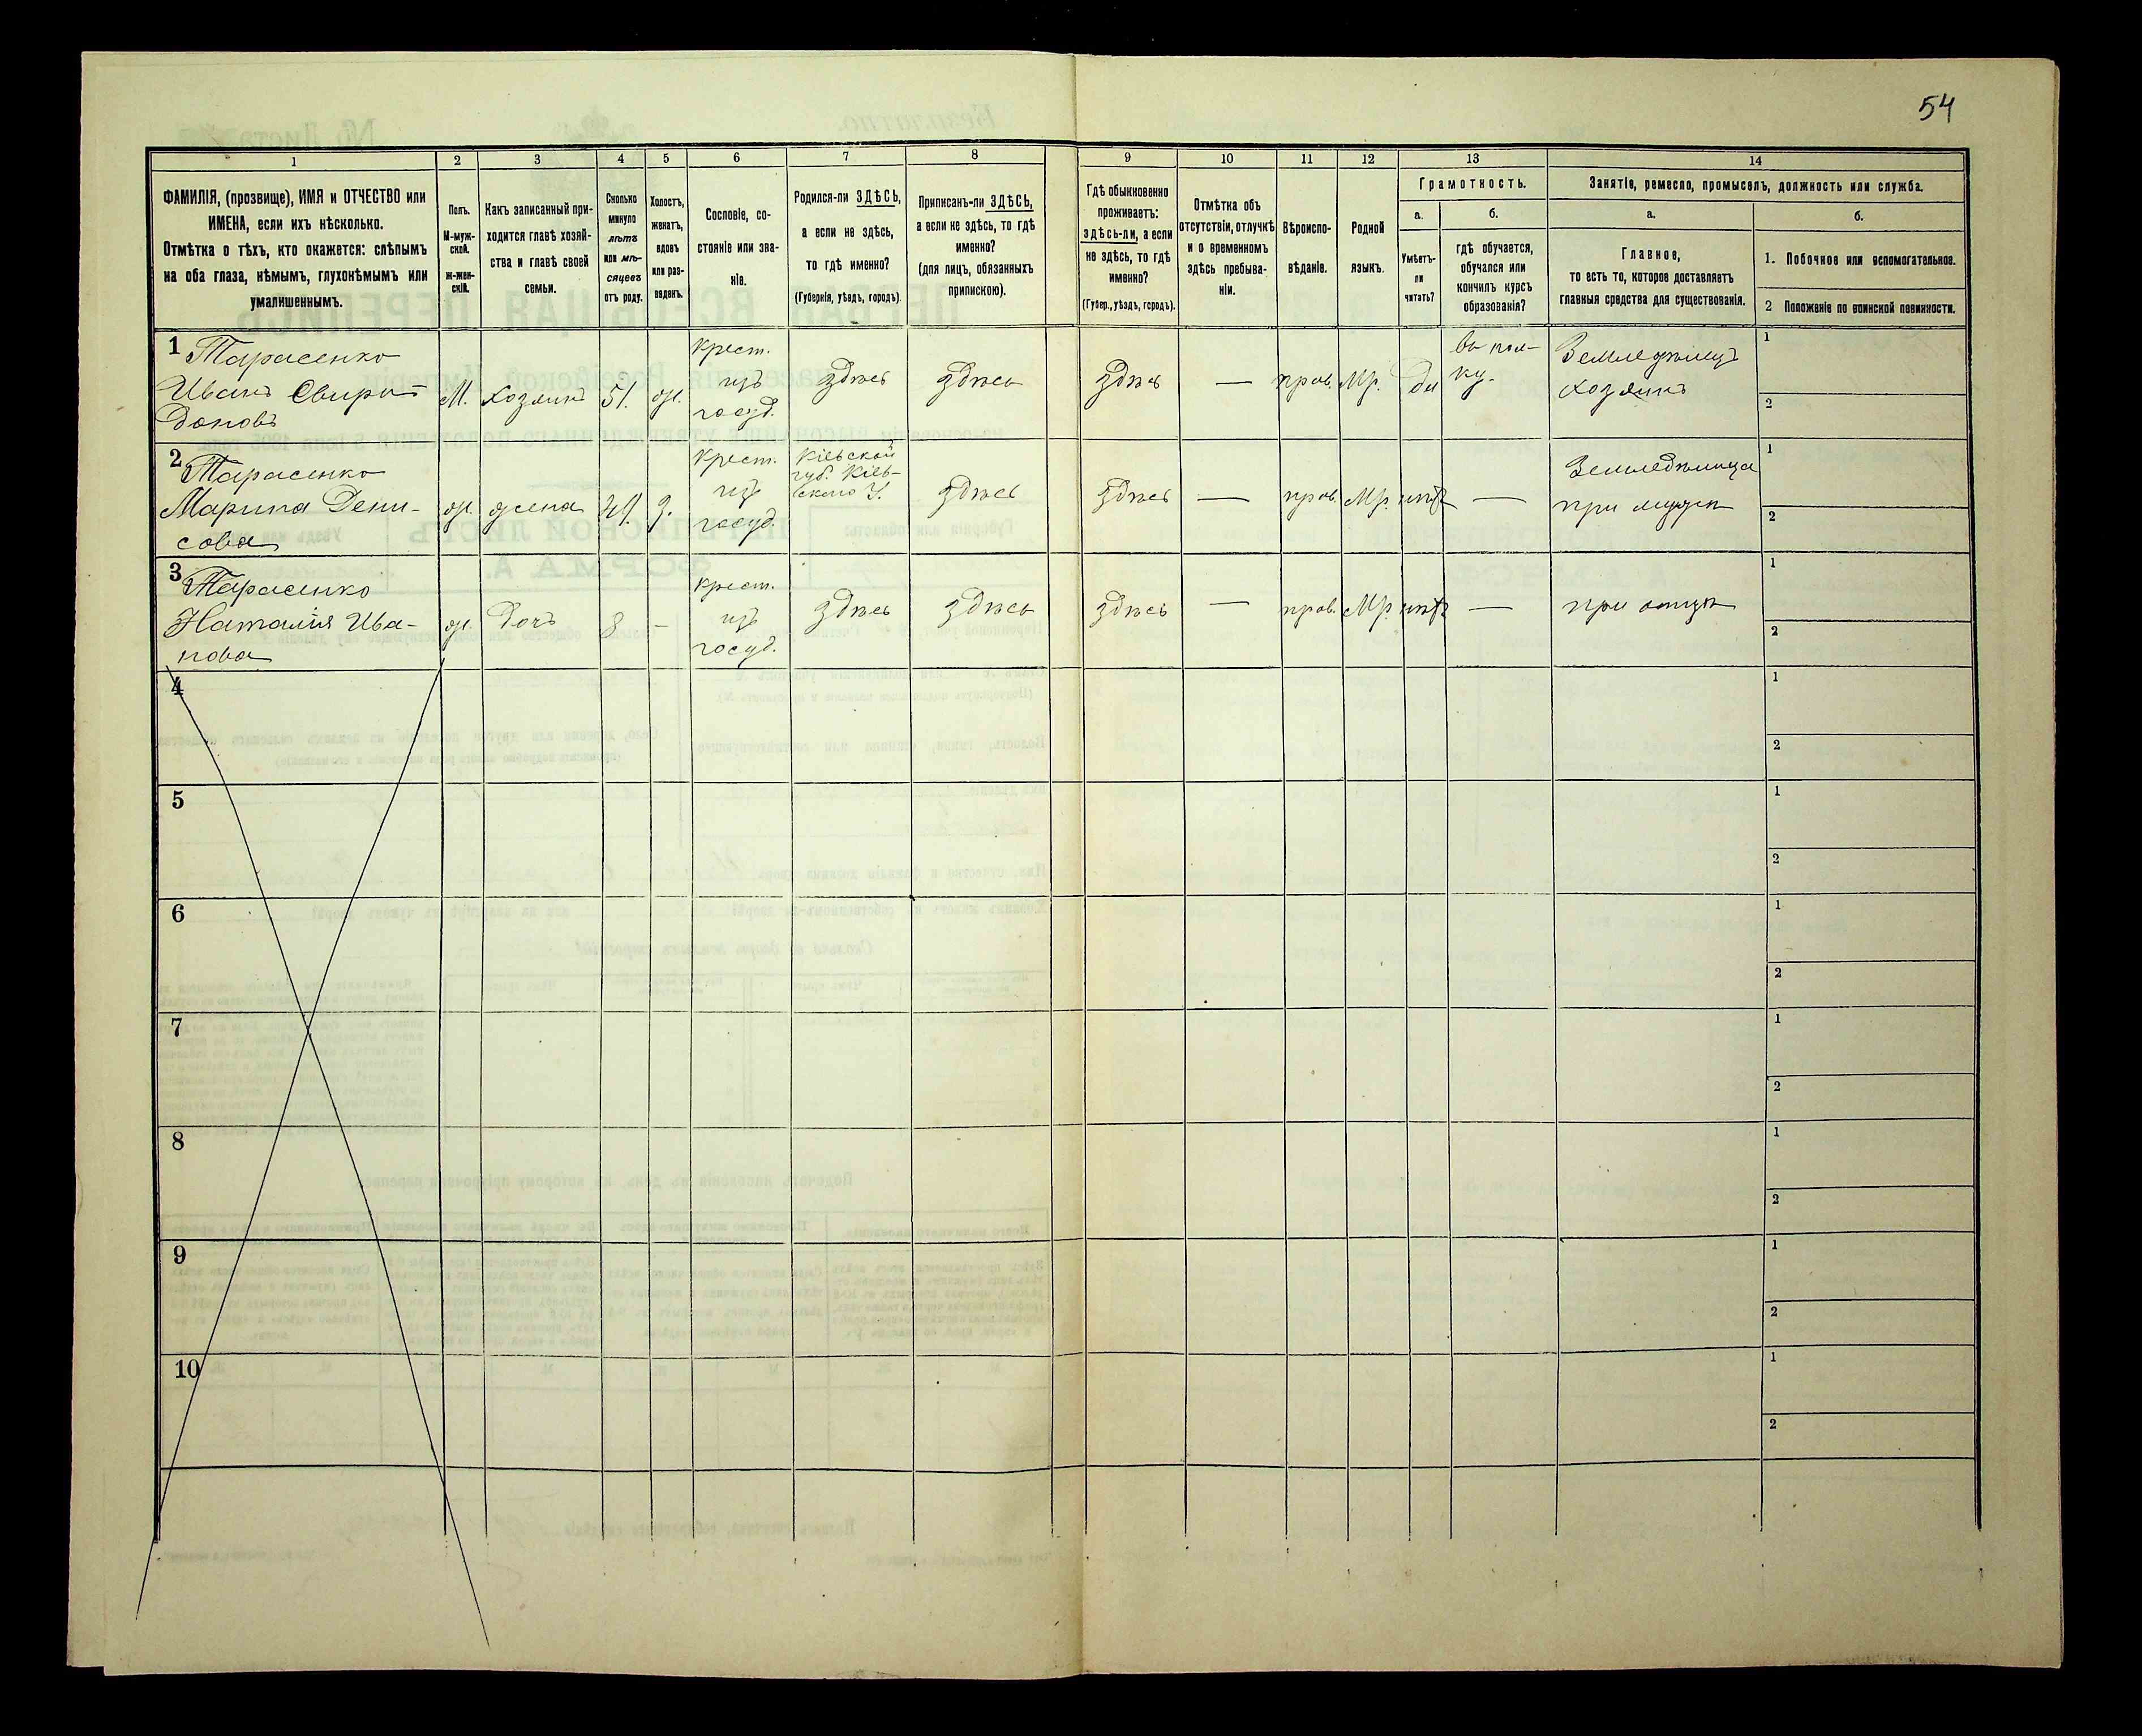 54
1 2 3 4 5 6 7 8 9 10 11 12 13 14
ФАМИЛІЯ, (прозвище), ИМЯ и ОТЧЕСТВО или
ИМЕНА, если ихъ нѣсколько.
Отмѣтка о тѣхъ, кто окажется: слѣпымъ
на оба глаза, нѣмымъ, глухонѣмымъ или
умалишеннымъ.
Полъ.
М-муж-
ской.
Ж-жен-
скій.
Какъ записанный при-
ходится главѣ хозяй-
ства и главѣ своей
семьи.
Сколько
минуло
лѣтъ
или мѣ-
сяцевъ
отъ роду.
Холостъ,
женатъ,
вдовъ
или раз-
веденъ.
Сословіе, со-
стояніе или зва-
ніе.
Родился-ли ЗДѢСЬ,
а если не здѣсь,
то гдѣ именно?
(Губернія, уѣздъ, городъ).
Приписанъ-ли ЗДѢСЬ,
а если не здѣсь, то гдѣ
именно?
(для лицъ, обязанныхъ
припискою).
Гдѣ обыкновенно
проживаетъ:
здѣсь-ли, а если
не здѣсь, то гдѣ
именно?
(Губер., уѣздъ, городъ).
Отмѣтка объ
отсутствіи, отлучкѣ
и о временномъ
здѣсь пребыва-
ніи.
Вѣроиспо-
вѣданіе.
Родной
языкъ.
Грамотность.
а. б.
Умѣетъ-
ли
читать?
гдѣ обучается,
обучался или
кончилъ курсъ
образованія?
Занятіе, ремесло, промыселъ, должность или служба.
а. б.
Главное,
то есть то, которое доставляетъ
главныя средства для существованія.
1. Побочное или вспомогательное.
2 Положеніе по воинской повинности.
1 Тарасенко
Иванъ Свири-
доновъ
М. Хозяинъ 51. ж.
крест.
изъ
госуд.
здѣсь здѣсь здѣсь — прав. Мр. да
Земледѣлецъ
хозяинъ
1
2
2 Тарасенко
Марина Дени-
сова
ж. жена
крест.
изъ
госуд.
Кіевской
губ. Кіев-
скаго У.
здѣсь здѣсь — прав. Мр. нѣтъ —
Земледѣлица
при мужѣ
1
2
3 Тарасенко
Наталія Ива-
нова
ж. Дочь 8 —
крест.
изъ
госуд.
здѣсь здѣсь здѣсь — прав. Мр. нѣтъ — при отцѣ
1
2
4
1
2
5
1
2
6
1
2
7
1
2
8
1
2
9
1
2
10
1
2